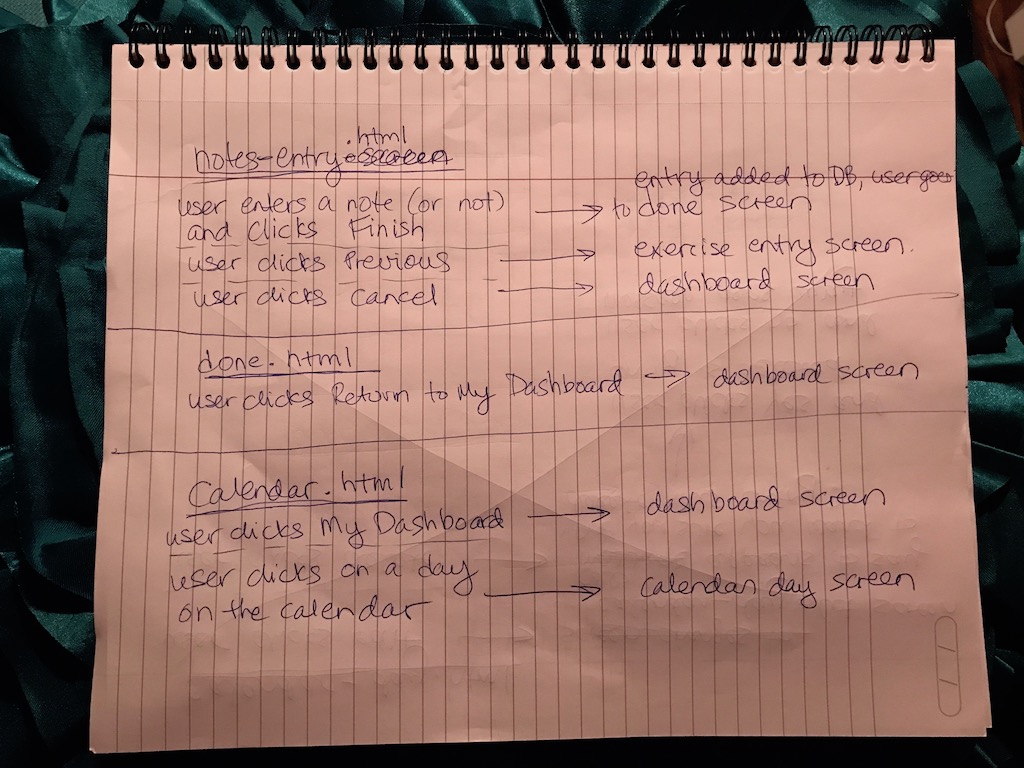 notes-entry.html
user enters a note (or not)
and clicks Finish
entry added to DB, user goes
to done screen
user clicks Previous
exercise entry screen.
user clicks Cancel
dashboard screen
done.html
user clicks Return to My Dashboard → dashboard screen
Calendar.html
user clicks My Dashboard → dashboard screen
user clicks on a day
on the calendar
calendar day screen